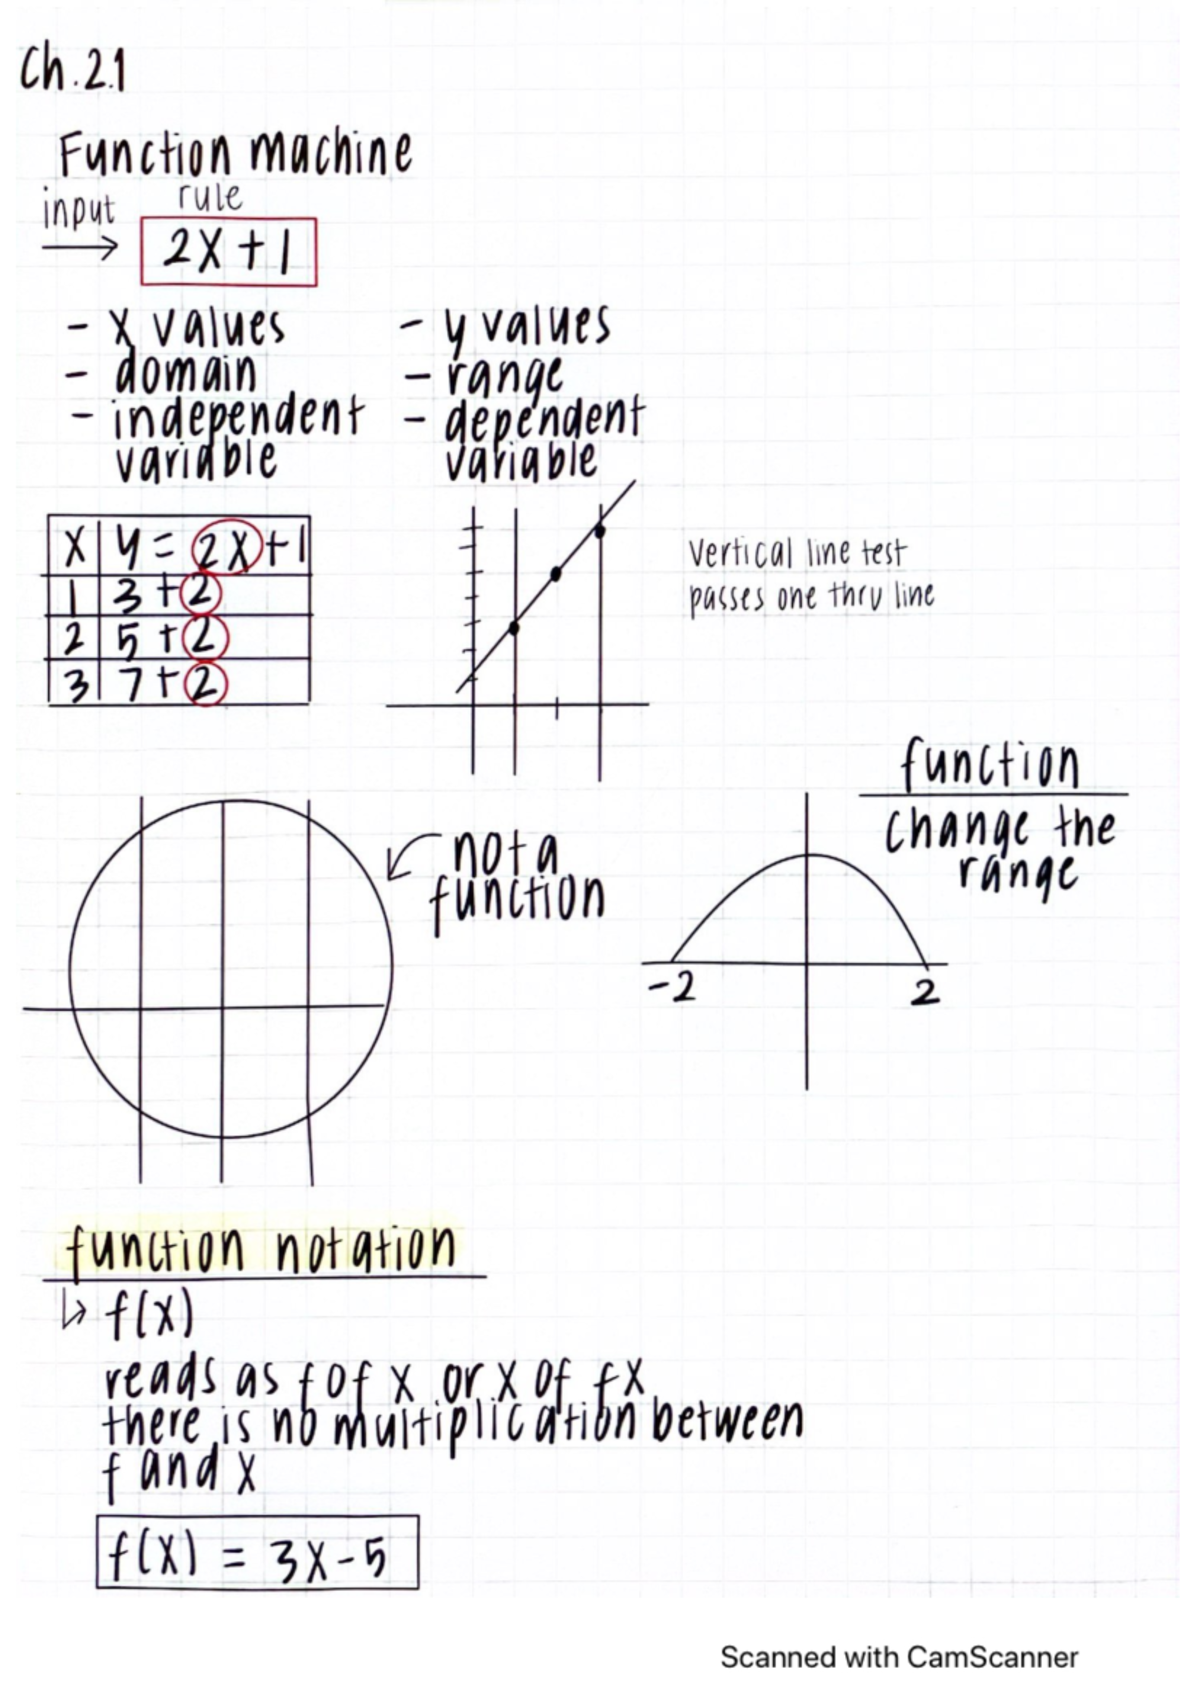 Ch.2.1
Function machine
input rule
2x+1
- x values
- domain
- independent
variable
- y values
- range
- dependent
variable
x y = 2x+1
1 3 +2
2 5 +2
3 7 +2
vertical line test
passes one thru line
not a
function
function
change the
range
-2 2
function notation
↳ f(x)
reads as f of x or x of fx
there is no multiplication between
f and x
f(x) = 3x-5
Scanned with CamScanner